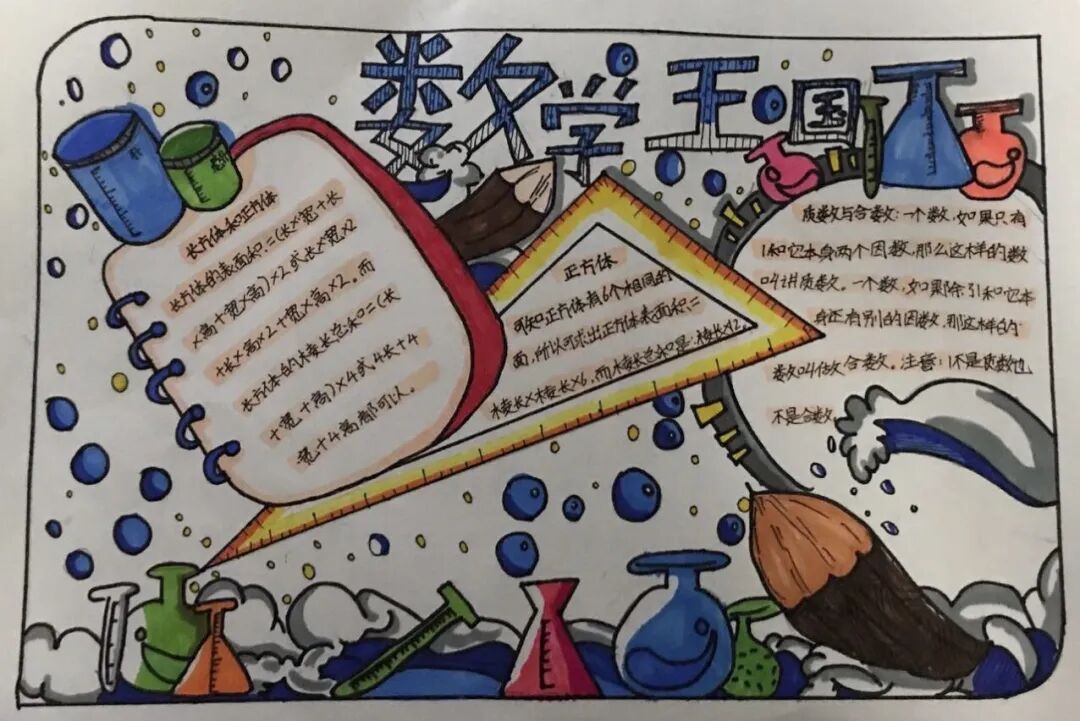 数学王国
长方体和正方体
长方体的表面积=(长×宽+长
×高+宽×高)×2或长×宽×2
+长×高×2+宽×高×2。而
长方体的棱长总和=(长
+宽+高)×4或4长+4
宽+4高都可以。
正方体
可知正方体有6个相同的
面,所以可求出正方体表面积=
棱长×棱长×6,而棱长总和是:棱长×12。
质数与合数:一个数,如果只有
1和它本身两个因数,那么这样的数
叫讲质数。一个数,如果除了1和它本
身还有别的因数,那这样的
数叫做合数。注意:1不是质数也
不是合数